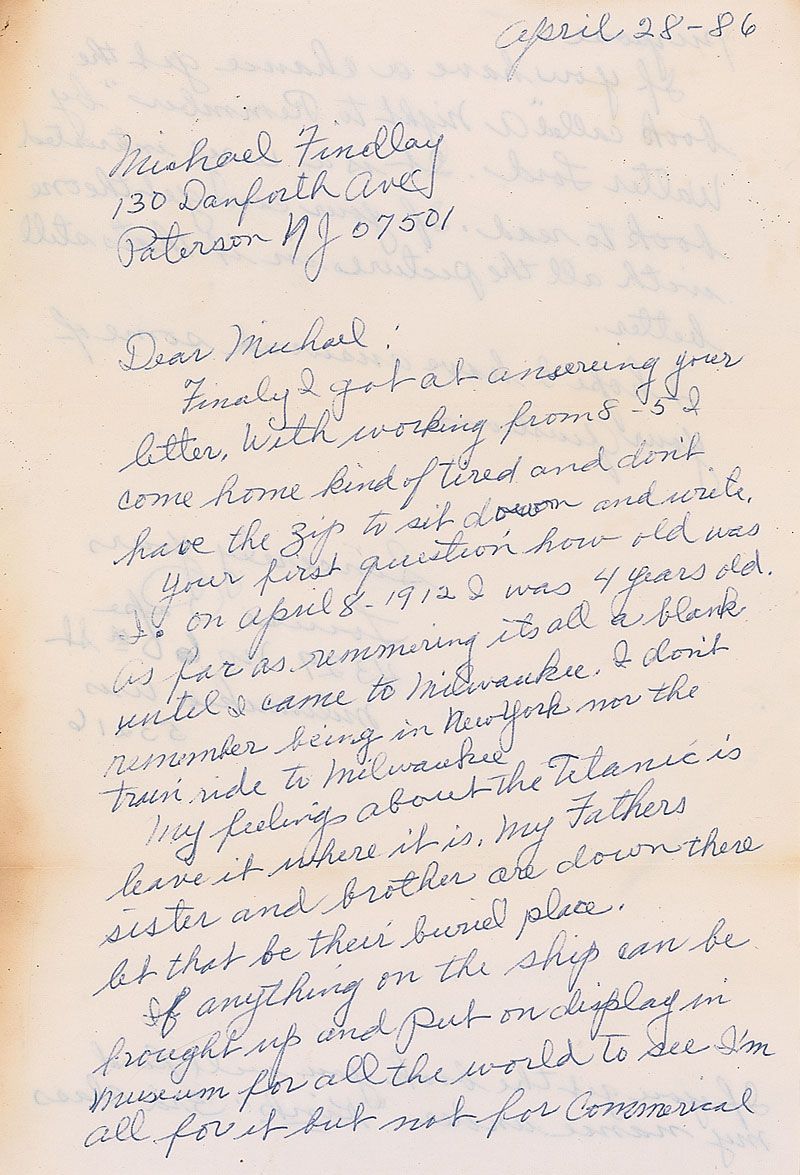 April 28-86
Michael Findlay
130 Danforth Ave
Paterson NJ 07501
Dear Michael:
Finaly I got at ansereing your
letter. With working from 8-5 I
come home kind of tired and don't
have the zip to sit down and write.
Your first question how old was
I. on april 8-1912 I was 4 years old.
As far as remmering its all a blank
until I came to Milwaukee. I don't
remember being in New York nor the
train ride to Milwaukee
My feelings about the Titanic is
leave it where it is. My Fathers
sister and brother are down there
let that be their buriel place.
If anything on the ship can be
brought up and put on display in
Museum for all the world to see I'm
all for it but not for Commerical